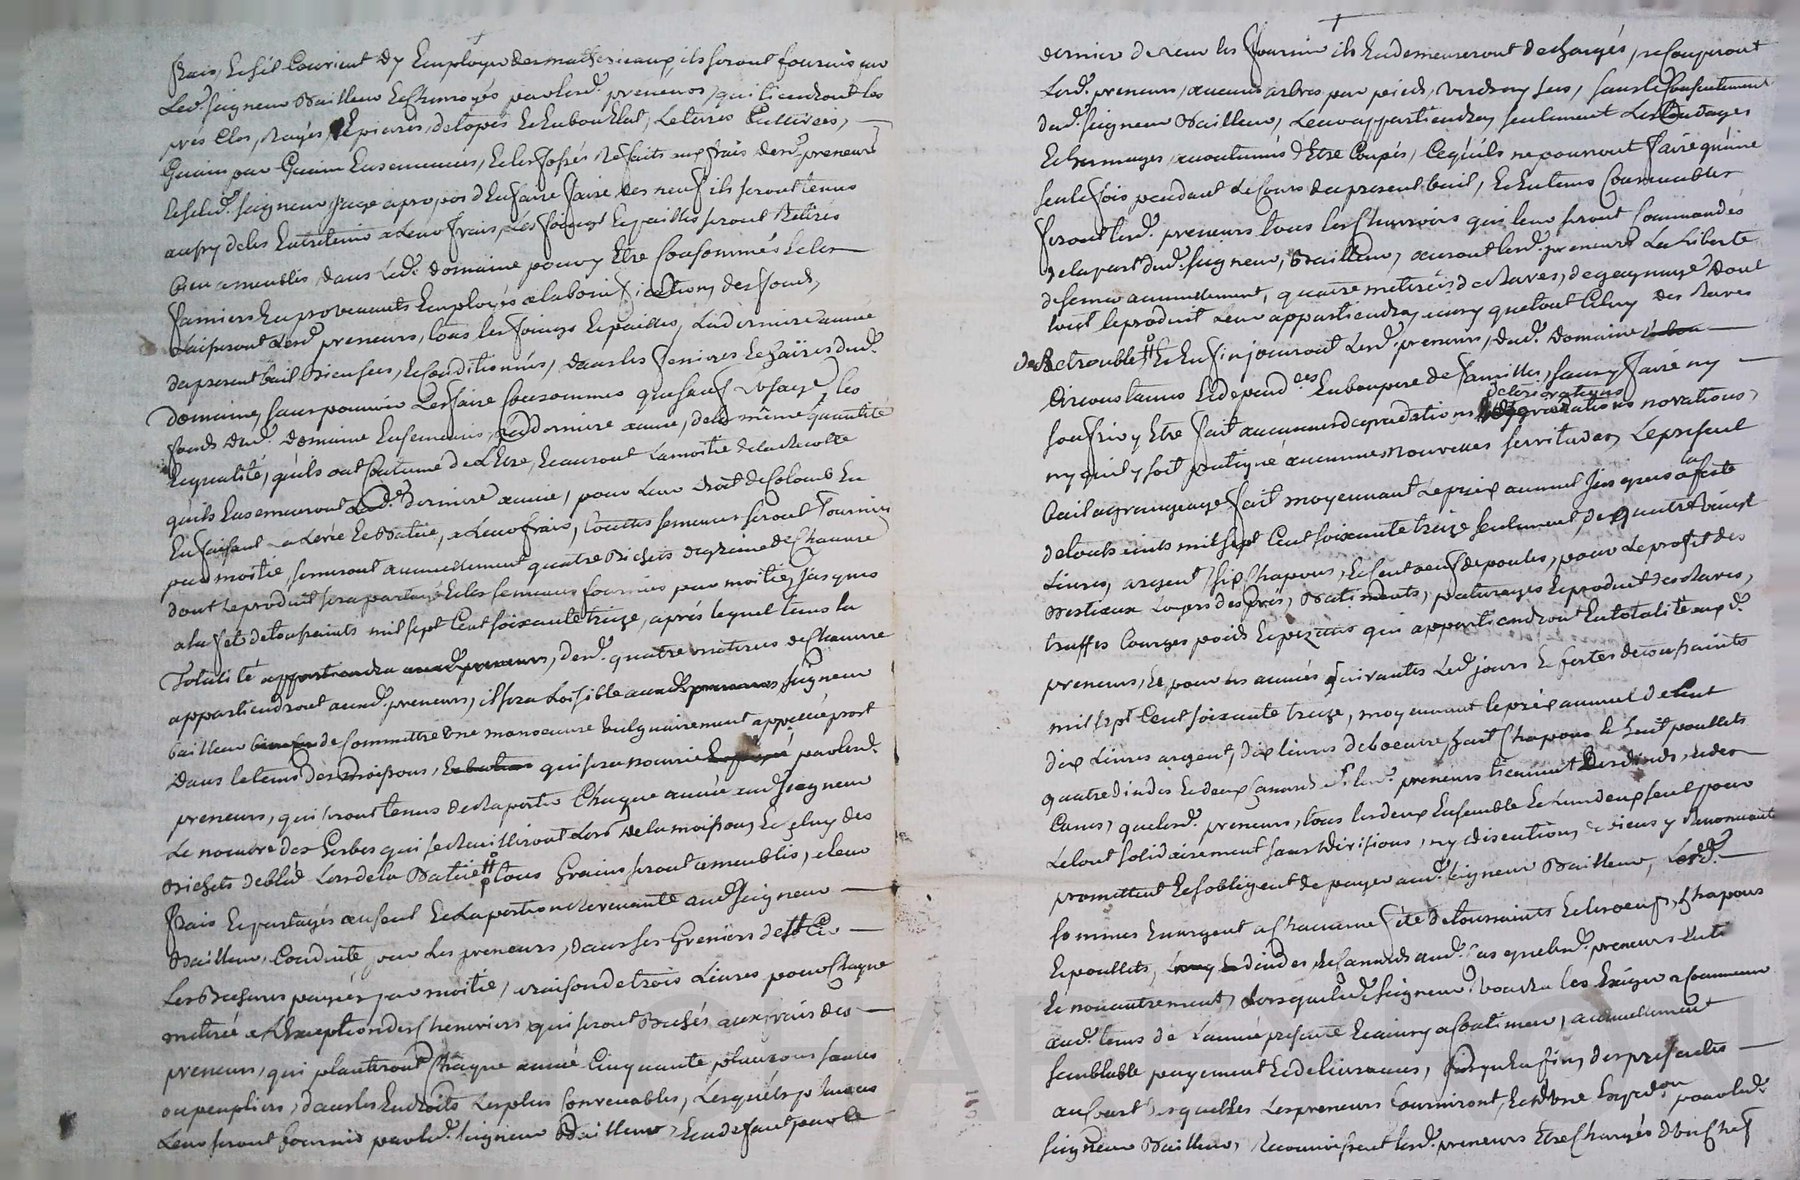 frais, Et s'il Convient d'y Employer des matheriaux, ils seront fournis par
Led. seigneur Bailleur Et Charroyés par lesd. preneurs, qui tiendront les
prés Clos, Rayés, Epierrés, detopés Et En bon Etat, Les terres Cultivées,
Guain par Guain Ensemencées, Et les fossés Refaits aux frais desd. preneurs
Et si led. seigneur juge apropos d'En faire faire des neufs ils seront tenus
aussy de les Entretenir a Leur frais, Les foings Et pailles seront Retirés
dans Led. domaine pour y Etre Consommés Et les
fumiers En provenants Employés a la bonification des fonds,
Laisseront Lesd. preneurs, tous les foings Et pailles, La derniere année
du present bail Bien secs, Et Conditionnés, dans les fenieres dud.
domaine, sans pouvoir Les faire Consommer que sauf L'usage, les
fonds dud. domaine Ensemencés, lad. derniere année, de la même quantité
Et qualité, qu'ils ont Coutume de L'Etre, Et auront La moitié de la Recolte
qu'ils Ensemenceront Lad. derniere année, pour Leur droit de Colons En
En faisant La Levée Et Batue, a Leur frais, toutes semences seront Fournies
par moitié, semeront annuellement quatre Bichets de graine de Chanvre
dont Le produit sera partagé Et les semences fournies par moitié, jusques
a la fete de toussaints mil sept Cent soixante treize, après lequel tems la
Totalité appartiendra auxd. preneurs, desd. quatre meterées de Chanvre
appartiendront auxd. preneurs, il sera Loisible auxd. preneurs, seigneur
bailleur de Commettre Une manoeuvre vulguairement appellée
Dans le tems des moissons, qui sera nourrie par lesd.
preneurs, qui seront tenus de Raporter Chaque année aud. seigneur
Le nombre des Gerbes qui se Recuilliront Lors de la moisson, Et Celuy des
Bichets de bled Lors de la Batue # tous Grains seront ameublis, a Leur
frais Et partagés au seul Et La portion Revenante aud. seigneur
Bailleur, Conduite par Les preneurs, dans ses Greniers de
payées par moitié, a raison de trois Livres pour Chaque
meterée a L'Exception des Cheneviers, qui seront aux frais des
preneurs, qui planteront Chaque année Cinquante plançons saules
ou peupliers, dans les Endroits Les plus Convenables, Lesquels plançons
Leur seront fournis par led. seigneur Bailleur, Et a defaut par le
dernier de Leur les fournir ils En demeureront dechargés, ne Couperont
Lesd. preneurs, aucuns arbres par pieds, Verds ny secs, sans le Consentement
dud. seigneur Bailleur, Leur appartiendra seulement Les
accoutumés d'Etre Coupés, Ce qu'ils ne pourront faire qu'une
seule fois pendant Le Cours du present bail, Et En tems Convenable
feront lesd. preneurs tous les Charrois qui leur seront Commandés
de la part dud. seigneur, Bailleur, auront lesd. preneurs La Liberté
de semer annuellement, quatre meterées de Raves, de gagnage dont
tout le produit Leur appartiendra, ainsy que tout Celuy des Raves
de Retrouble # Et Enfin jouiront Lesd. preneurs, dud. domaine
Circonstances Et dependces En bon pere de famille, sans y faire ny
deteriorations
souffrir y Etre fait aucunes degradations, novations,
ny qu'il y soit pratiqué aucunes nouvelles servitudes, Le present
bail a grangeage fait moyennant Le prix annuel jusques a la fete
de toussaints mil sept Cent soixante treize seulement, de quatre vingt
Livres, argent, six Chapons, Et Cent oeufs de poules, pour Le profit des
Bestiaux Loyers des prés, Batiments, paturages Et produit des Raves,
truffes Courges pois Et qui appartiendront En totalité auxd.
preneurs, Et pour les années suivantes Led. jours Et fetes de toussaints
mil sept Cent soixante treize, moyennant le prix annuel de Cent
dix Livres argent, dix livres de beurre huit Chapons Et huit poullets
quatre dindes Et deux Canards si lesd. preneurs tiennent Des dindes, Et des
Canes, que lesd. preneurs, tous les deux Ensemble Et L'un d'eux seul pour
Le tout solidairement sans division, ny discution de biens y Renonçant
promettent Et s'obligent de payer aud. seigneur Bailleur, Lesd.
sommes En argent a Chacune fete de toussaints Et les oeufs, Chapons
Et poullets, dindes, Et Canards aud. Cas que lesd. preneurs
Et non autrement, Lorsque led. seigneur Voudra les Exiger a Commencer
aud. tems de L'année presente Et ainsy a Continuer, annuellement
semblable payement Et delivrances, jusqu'à la fin, des presentes
au Cours desquelles Les preneurs fourniront, Expedon par led.
seigneur Bailleur, Reconnoissent lesd. preneurs Etre Chargés d'Un Chef